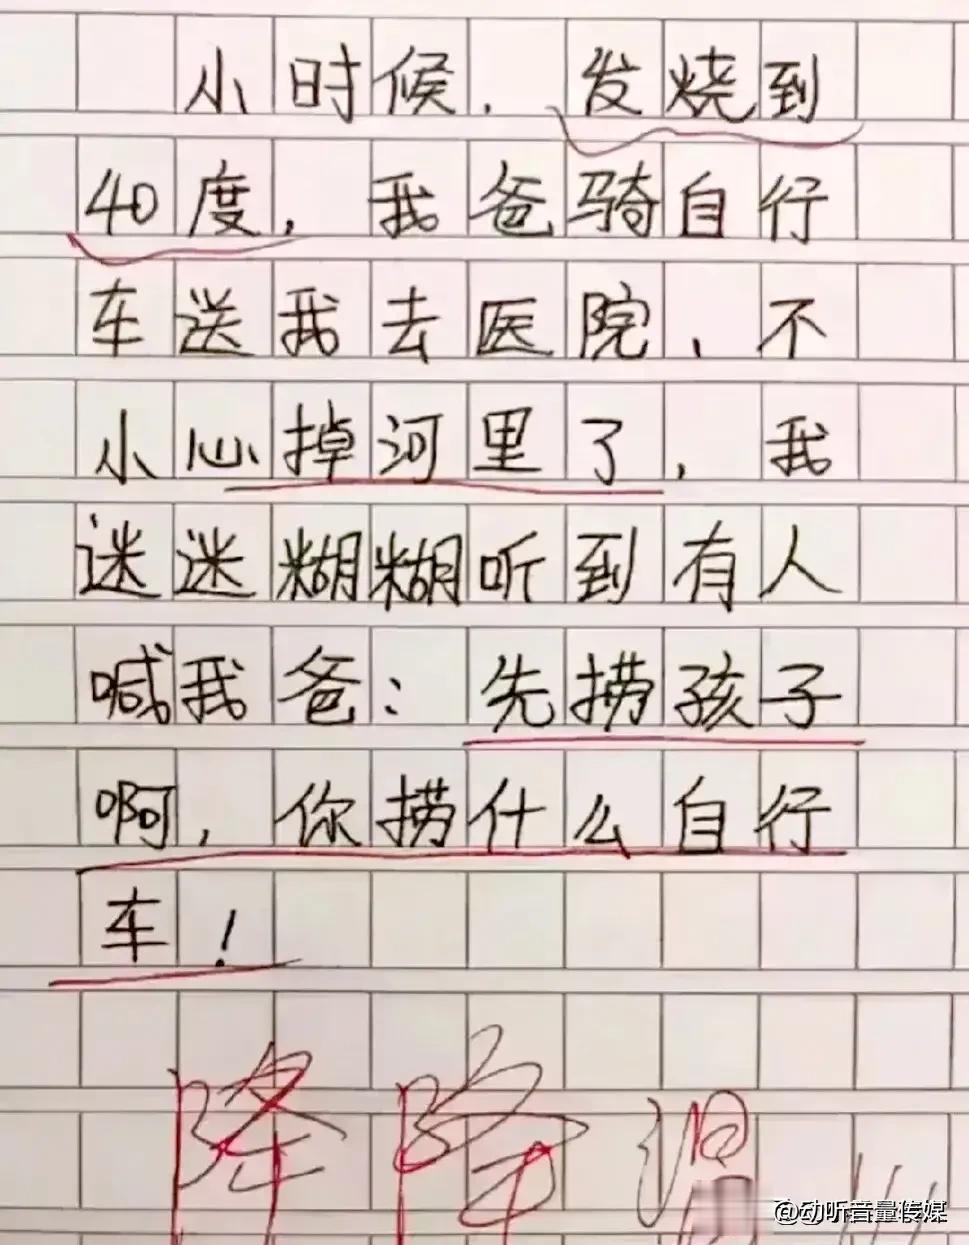 小时候，发烧到
40度，我爸骑自行
车送我去医院，不
小心掉河里了，我
迷迷糊糊听到有人
喊我爸：先捞孩子
啊，你捞什么自行
车！
降降温
@动听音量传媒